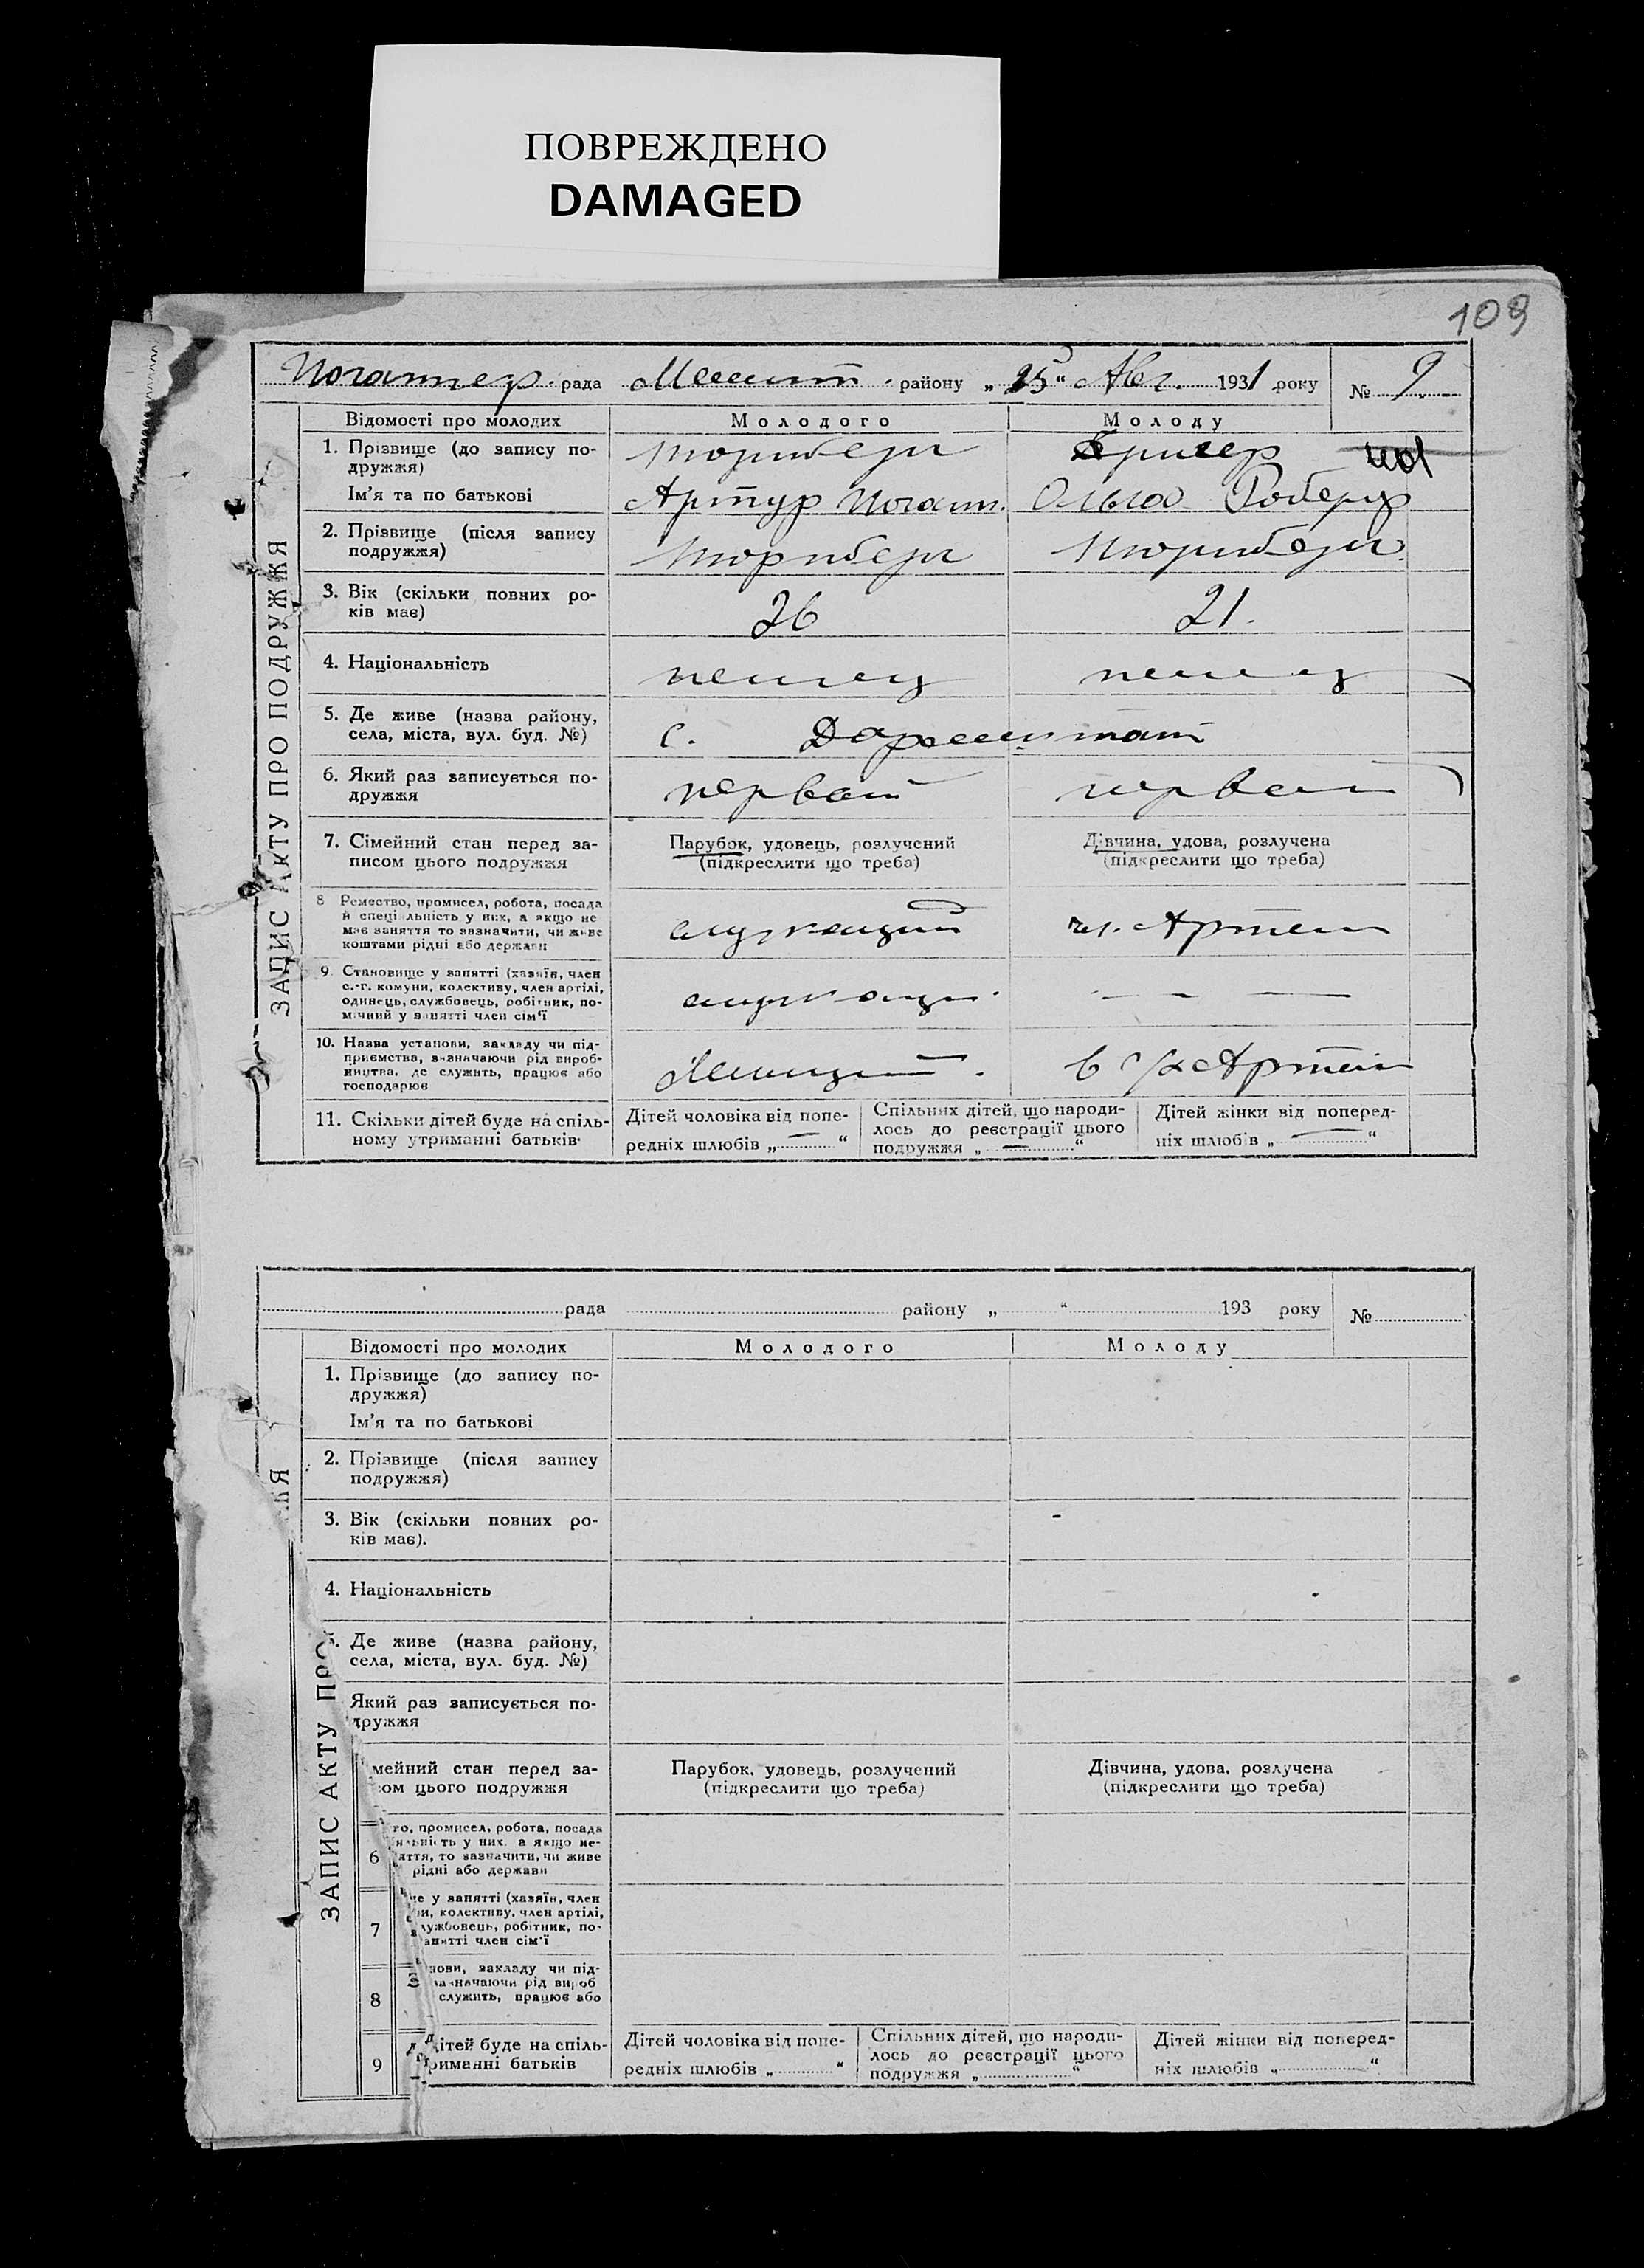 ПОВРЕЖДЕНО
DAMAGED
109
рада район у „25“ Авг. 1931 року № 9
ЗАПИС АКТУ ПРО ПОДРУЖЖЯ
Відомості про молодих Молодого Молоду
1. Прізвище (до запису по-
дружжя)
Ім'я та по батькові Артур Ольга
2. Прізвище (після запису
подружжя)
3. Вік (скільки повних ро-
ків має) 26 21.
4. Національність немец немец
5. Де живе (назва району,
села, міста, вул. буд. №) с. Дармштат
6. Який раз записується по-
дружжя первый первый
7. Сімейний стан перед за-
писом цього подружжя
Парубок, удовець, розлучений
(підкреслити що треба)
Дівчина, удова, розлучена
(підкреслити що треба)
8 Ремество, промисел, робота, посада
й спеціальність у них, а якщо не
має заняття то зазначити, чи живе
коштами рідні або держави
служащий чл. Артели
9. Становище у занятті (хазяїн, член
с.-г. комуни, колективу, член артілі,
одинець, службовець, робітник, по-
мічний у занятті член сім'ї
служащ. — — —
10. Назва установи, закладу чи під-
приємства, зазначаючи рід вироб-
ництва, де служить, працює або
господарює
в с/х Артели
11. Скільки дітей буде на спіль-
ному утриманні батьків
Дітей чоловіка від попе-
редніх шлюбів „—“
Спільних дітей, що народи-
лось до реєстрації цього
подружжя „—“
Дітей жінки від поперед-
ніх шлюбів „—“
рада району „ “ 193 року №
ЗАПИС АКТУ ПРО
ЖЯ
Відомості про молодих Молодого Молоду
1. Прізвище (до запису по-
дружжя)
Ім'я та по батькові
2. Прізвище (після запису
подружжя)
3. Вік (скільки повних ро-
ків має).
4. Національність
5. Де живе (назва району,
села, міста, вул. буд. №)
Який раз записується по-
дружжя
мейний стан перед за-
сом цього подружжя
Парубок, удовець, розлучений
(підкреслити що треба)
Дівчина, удова, розлучена
(підкреслити що треба)
во, промисел, робота, посада
яльність у них, а якщо не-
6 аяття, то зазначити, чи живе
рідні або держави
ще у занятті (хазяїн, член
ни, колективу, член артілі,
7 лужбовець, робітник, по-
занятті член сім'ї
нови, закладу чи під-
зазначаючи рід вироб
8 служить, працює або
дітей буде на спіль-
9 риманні батьків
Дітей чоловіка від попе-
редніх шлюбів „ “
Спільних дітей, що народи-
лось до реєстрації цього
подружжя „ “
Дітей жінки від поперед-
ніх шлюбів „ “